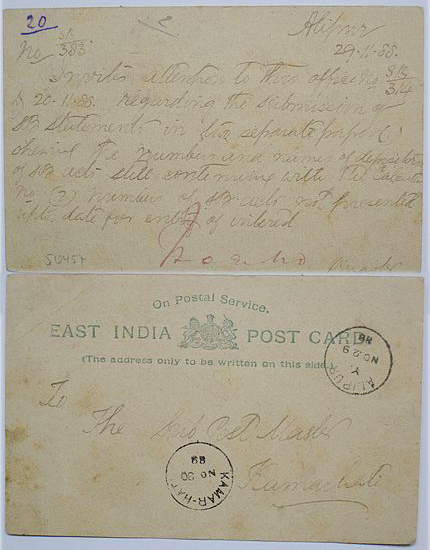 20
Alipur
No SB/383
29-11-88.
Invites attention to this office no SB/314
d 20-11-88. regarding the submission of
SB statements in two separate papers (1)
showing the number and names of depositors
of SB accts still continuing with the
no (2) numbers of SB accts not presented
upto date for entry of interest
56457
On Postal Service.
EAST INDIA POST CARD
(The address only to be written on this side.)
ALIPUR
NO 29
88
To
The Sub Post Master
Kamarhati
KAMAR-HAT
NO 30
88